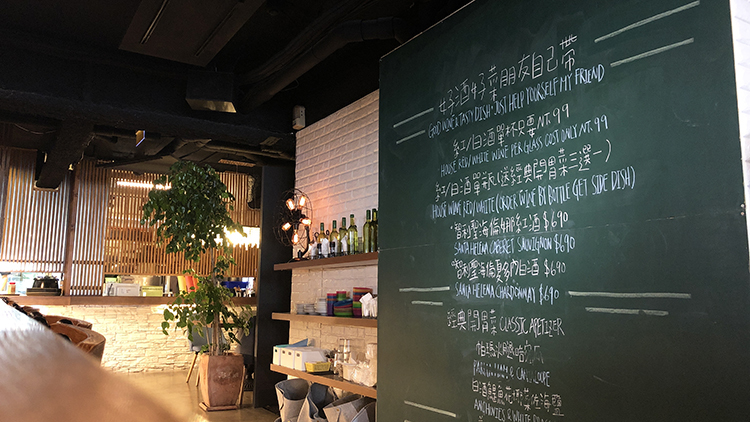 好酒好菜朋友自己帶
GOOD WINE & TASTY DISH JUST HELP YOURSELF MY FRIEND
紅/白酒單杯只要NT.99
HOUSE RED/WHITE WINE PER GLASS COST ONLY NT.99
紅/白酒單瓶(送經典開胃菜三選一)
HOUSE WINE RED/WHITE (ORDER WINE BY BOTTLE GET SIDE DISH)
智利聖海倫娜紅酒 $690
SANTA HELENA CABERET SAUVIGNON $690
智利聖海倫夏多內白酒 $690
SANTA HELENA CHARDONNAY $690
經典開胃菜 CLASSIC APETIZER
帕瑪火腿哈
& CANTALOUPE
白酒鯷魚花椰菜佐海鹽
ANCHOVIES & WHITE